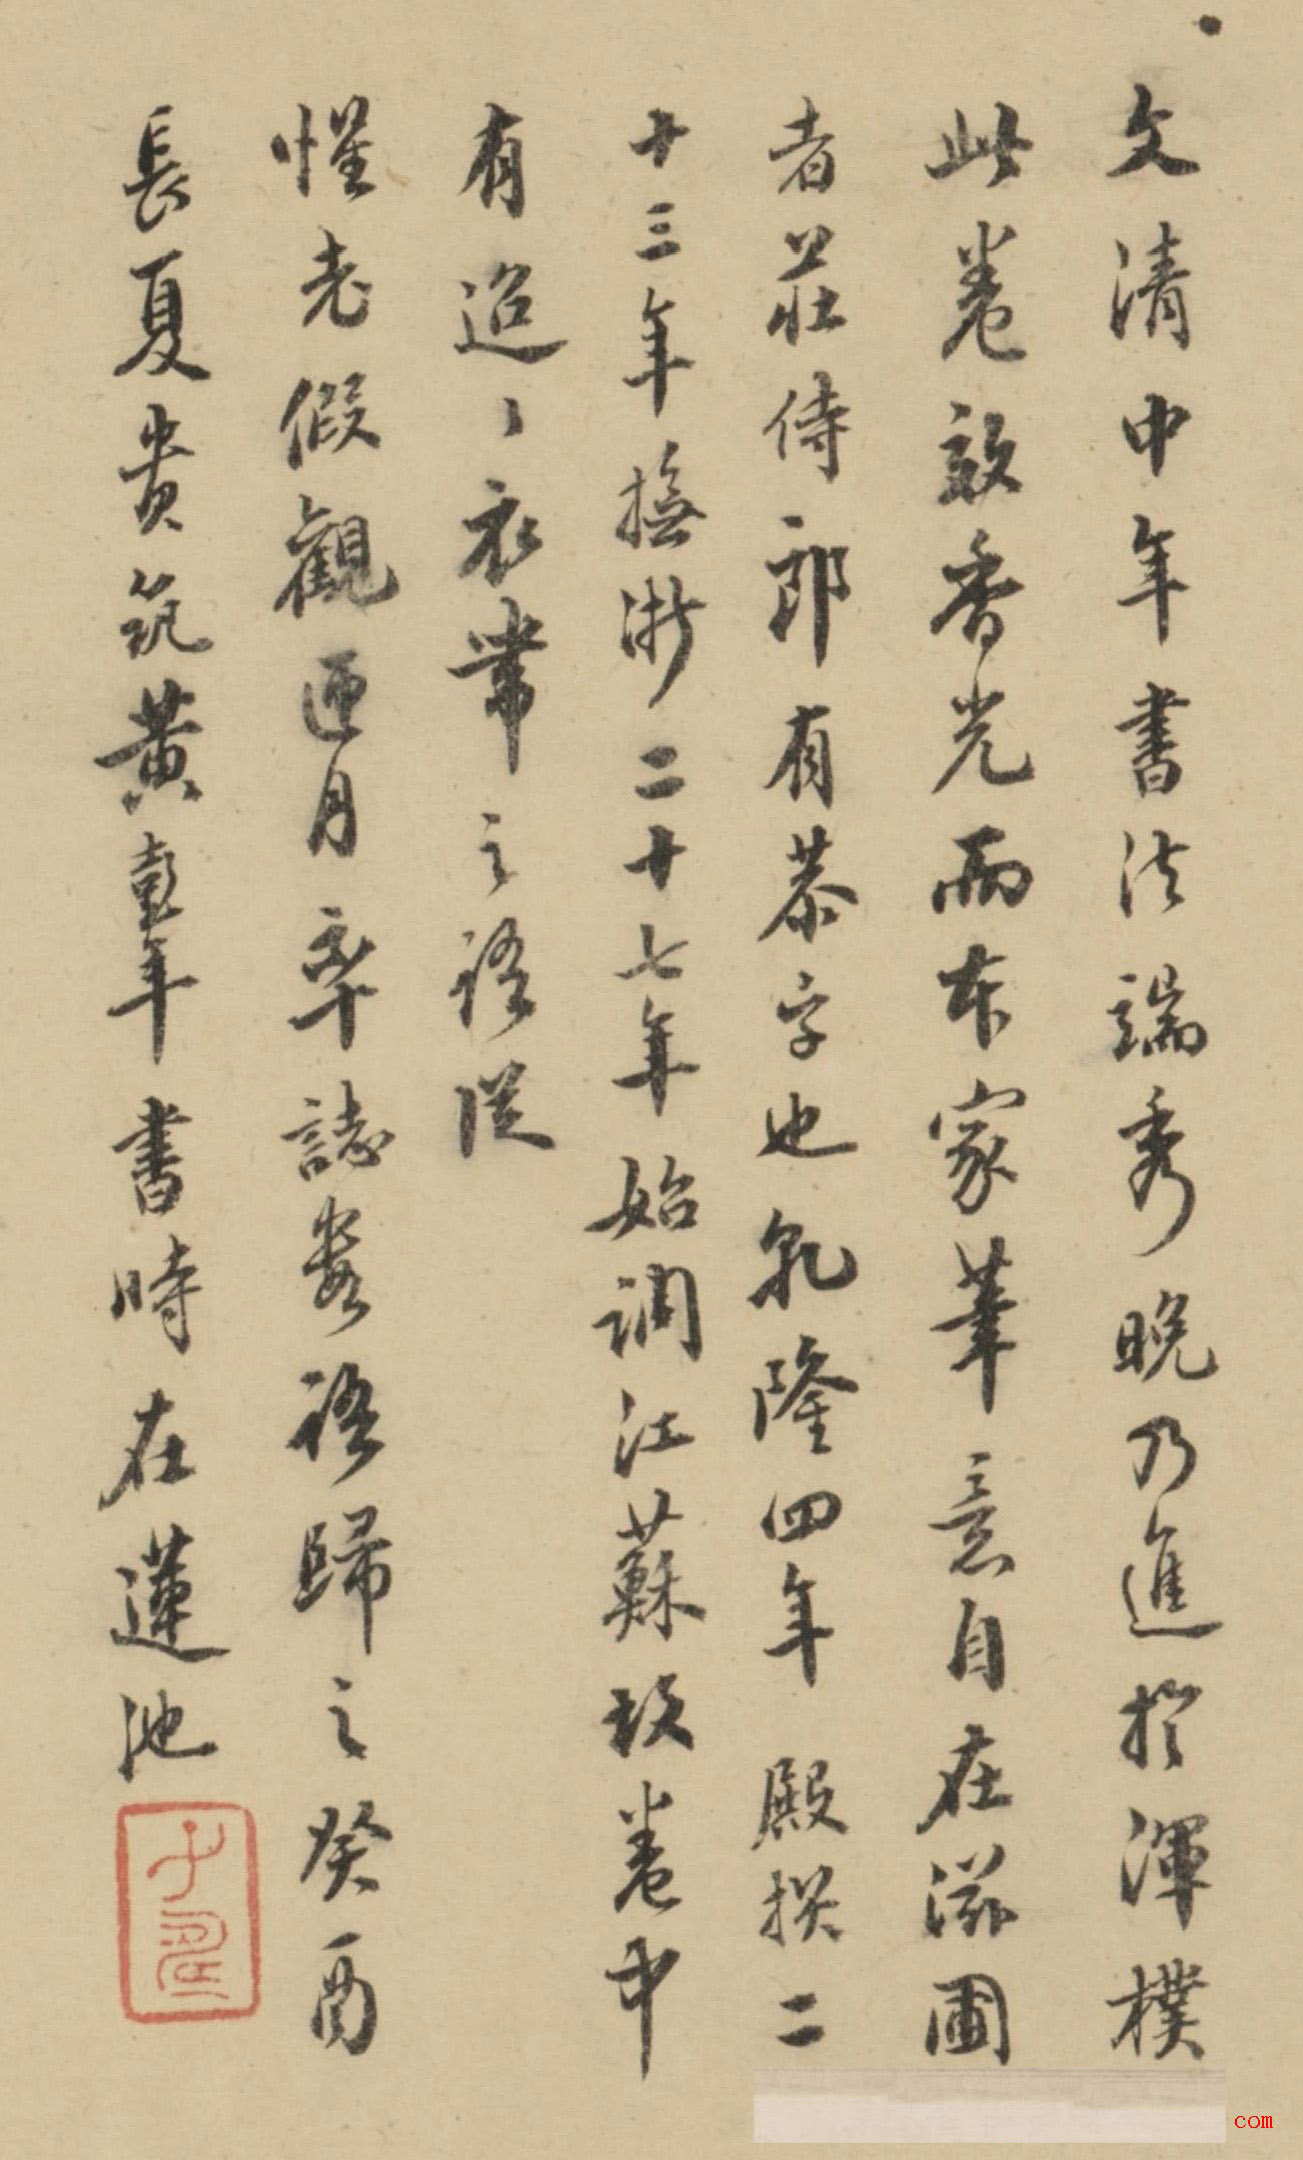 文清中年書法端秀晚乃進於渾樸
此卷效香光而本家筆意自在滋圃
者莊侍郎有恭字也乾隆四年殿撰二
十三年撫浙二十七年始調江蘇故卷中
有迢〻衣帶之語從
惺老假觀匝月率誌數語歸之癸酉
長夏貴筑黃彭年書時在蓮池
子壽
com